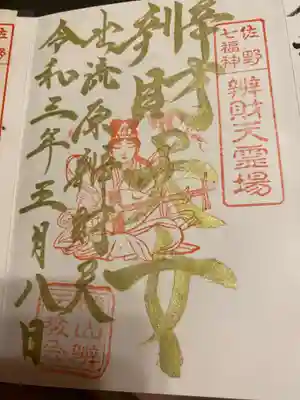 佐野
七福神
辨財天霊場
辨財天女
出流原辨財天
令和三年三月八日